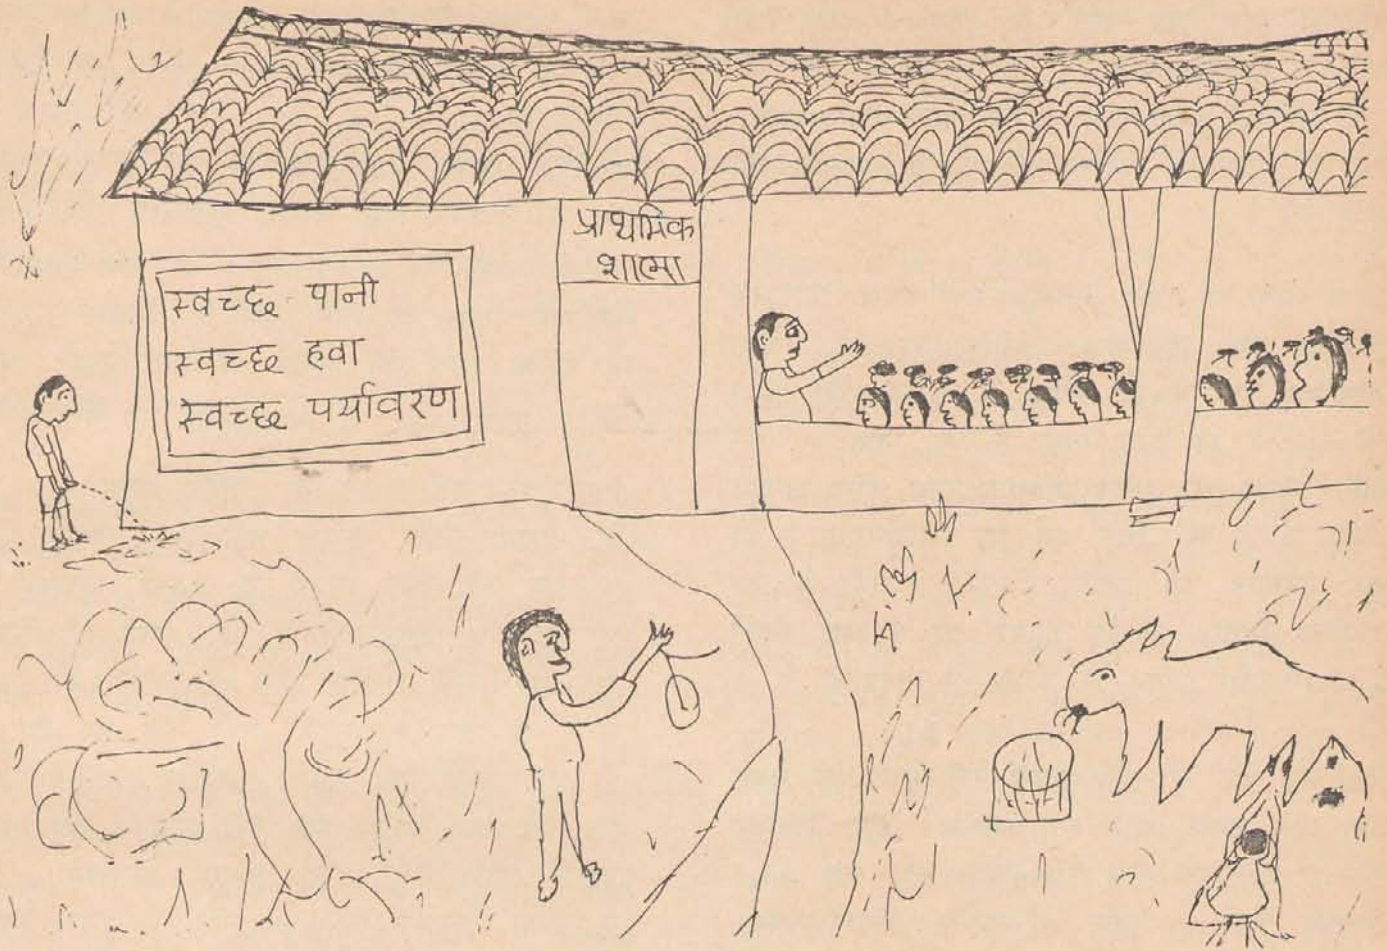 स्वच्छ पानी
स्वच्छ हवा
स्वच्छ पर्यावरण
प्राथमिक
शाला